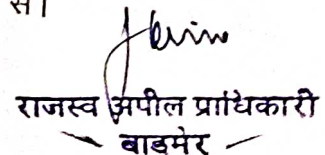 से।
राजस्व अपील प्राधिकारी
बाडमेर